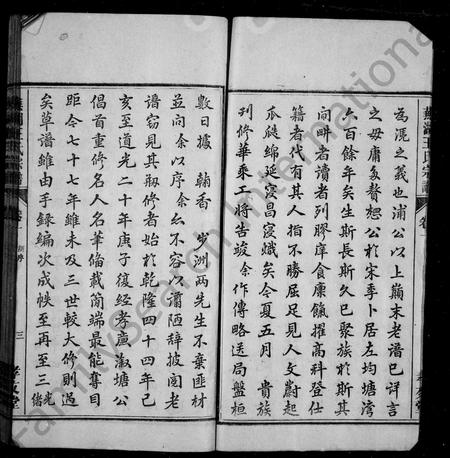 蕪湖王氏宗譜
卷
為溉之義也浦公以上巔末老譜已詳言
之毋庸多贅恕公於宋季卜居左均塘灣
六百餘年矣生斯長斯久已聚族於斯其
间畊者讀者列膠庠食廪餼擢高科登仕
籍者代有其人指不勝屈足見人文蔚起
瓜瓞綿延寖昌寖熾矣今夏五月 貴族
刊修華乘工將告竣余作傳略送局盤桓
數日據 翰香 少洲两先生不棄匪材
並向余以序余幺不容以谫陋辭披阅老
譜窃見其剏修者始於乾隆四十四年己
亥至道光二十年庚子復經孝廉淑塘公
倡首重修名人名筆俻載简端最能奪目
距令七十七年雖未及三世較大修則過
矣草譜雖由手録編次成帙至再至三俻光
三
孝友堂
FamilySearch International